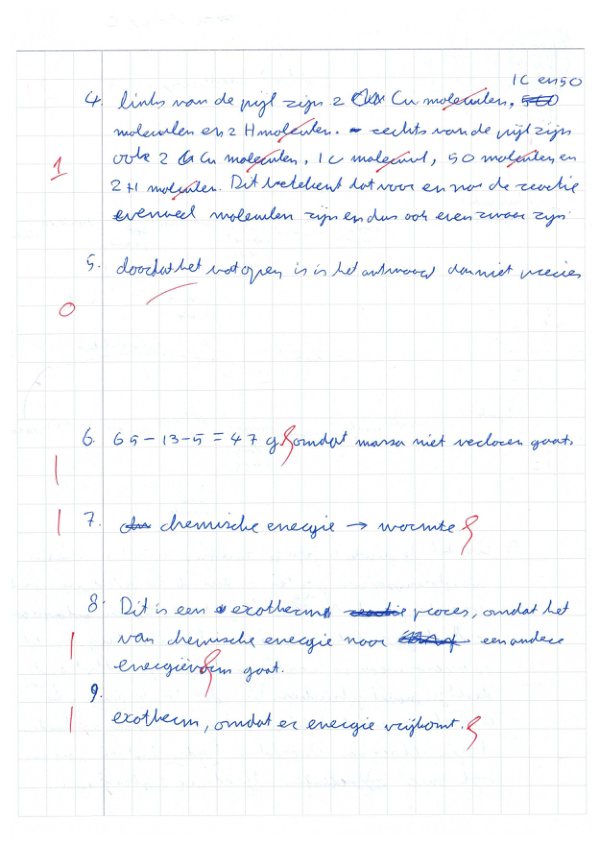 1C en 5O
4. links van de pijl zijn 2 Cu moleculen,
moleculen en 2 H moleculen. rechts van de pijl zijn
1 ook 2 Cu moleculen, 1C molecuul, 5O moleculen en
2 H moleculen. Dit betekent dat voor en na de reactie
evenveel moleculen zijn en dus ook even zwaar zijn.
5. doordat het vat open is is het antwoord dan niet precies
0
6. 65-13-5=47 g omdat massa niet verloren gaat.
1
1 7. chemische energie → warmte
8. Dit is een exotherm proces, omdat het
1 van chemische energie naar een andere
energievorm gaat.
9.
1 exotherm, omdat er energie vrijkomt.